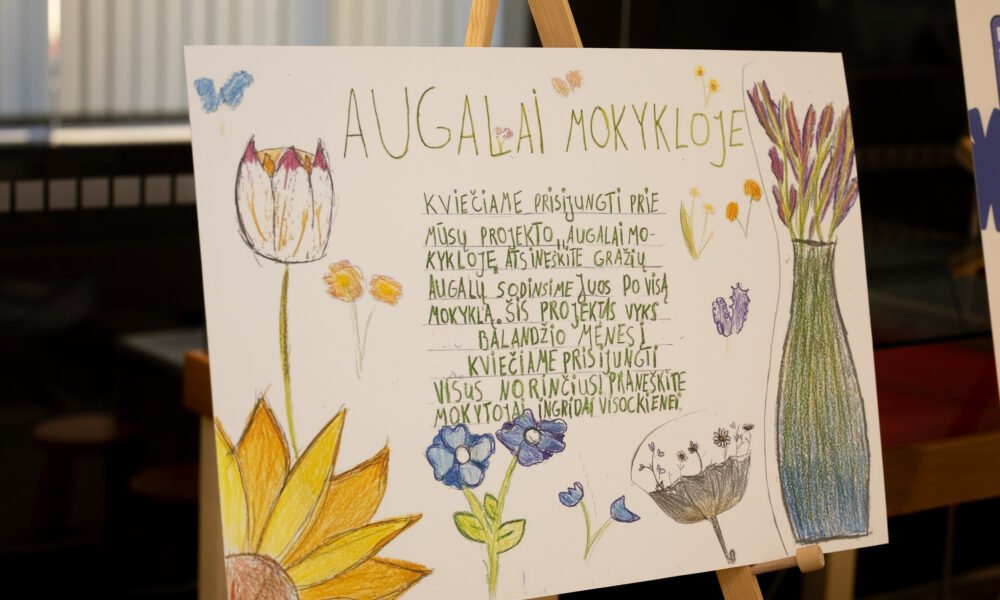 AUGALAI MOKYKLOJE
KVIEČIAME PRISIJUNGTI PRIE
MŪSŲ PROJEKTO „AUGALAI MO-
KYKLOJĘ, ATSINEŠKITE GRAŽIŲ
AUGALŲ SODINSIME JUOS PO VISĄ
MOKYKLĄ. ŠIS PROJEKTAS VYKS
BALANDŽIO MĖNESĮ
KVIEČIAME PRISIJUNGTI
VISUS NORINČIUS! PRANEŠKITE
MOKYTOJAI INGRIDAI VISOCKIENEI.